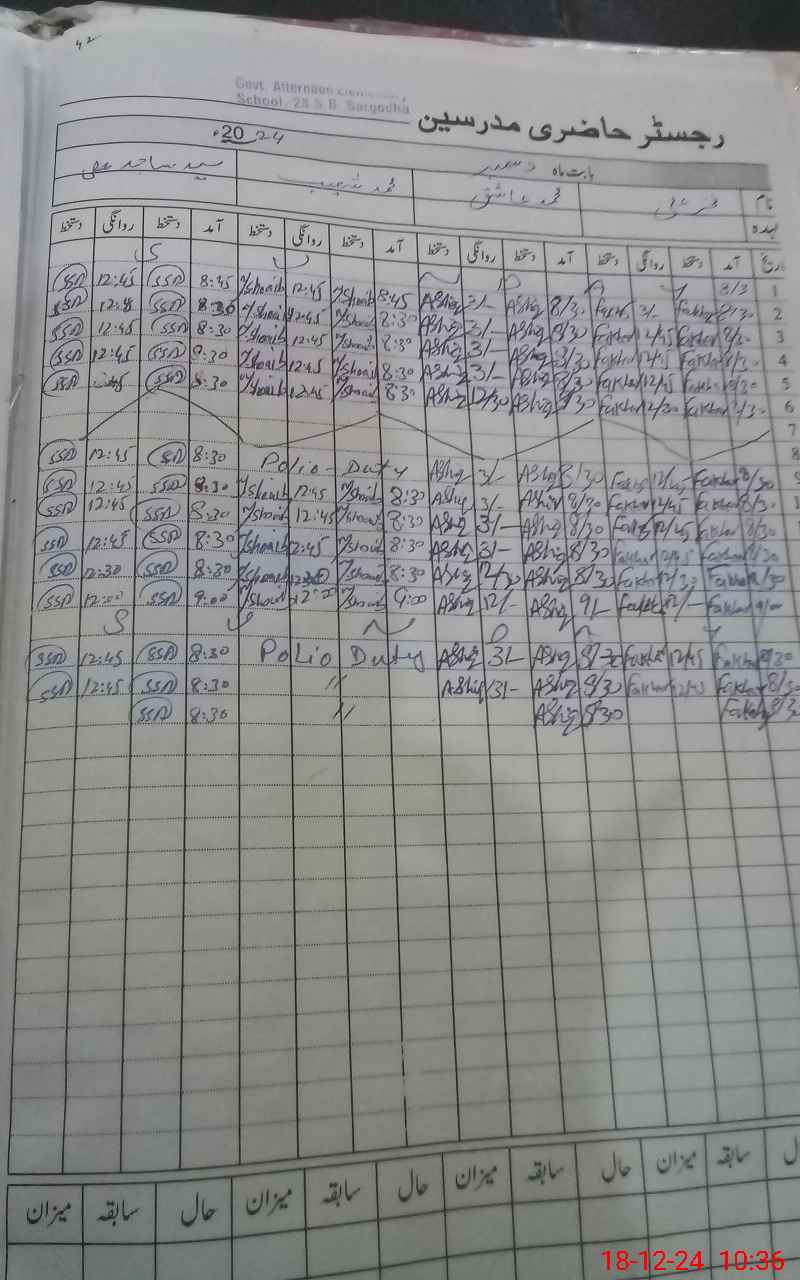 42
Govt. Afternoon Elementary
School, 28 S.B. Sargodha
رجسٹر حاضری مدرسین
2024ء
بابت ماہ دسمبر
نام فخر علی محمد عاشق محمد شعیب سید ساجد علی
عہدہ
تاریخ آمد دستخط روانگی دستخط آمد دستخط روانگی دستخط آمد دستخط روانگی دستخط آمد دستخط روانگی دستخط
1
SSA 12:45 SSA 8:45 M/Shoaib 12:45 M/Shoaib 8:45 AShiq 3/- AShiq 8/30 Fakhar 3/- Fakhar 8/30 2
SSA SSA 8:30 M/Shoaib 12:45 M/Shoaib 8:30 AShiq 3/- AShiq 8/30 Fakhar 12/45 Fakhar 8/30 3
SSA 12:45 SSA 8:30 M/Shoaib 12:45 M/Shoaib 8:30 AShiq 3/- AShiq 8/30 Fakhar 12/45 Fakhar 8/30 4
SSA 12:45 SSA 8:30 M/Shoaib 12:45 M/Shoaib 8:30 AShiq 3/- AShiq 8/30 Fakhar 12/45 Fakhar 8/30 5
SSA SSA 8:30 M/Shoaib 12:45 M/Shoaib 8:30 AShiq 12/30 AShiq 8/30 Fakhar 12/30 Fakhar 8/30 6
7
8
SSA 12:45 SSA 8:30 Polio-Duty AShiq 3/- AShiq 8/30 Fakhar 12/45 Fakhar 8/30 9
SSA 12:45 SSA 8:30 M/Shoaib 12:45 M/Shoaib 8:30 AShiq 3/- AShiq 8/30 Fakhar 12/45 Fakhar 8/30
SSA 12:45 SSA 8:30 M/Shoaib 12:45 M/Shoaib 8:30 AShiq 3/- AShiq 8/30 Fakhar 12/45 Fakhar 8/30
SSA 12:45 SSA 8:30 M/Shoaib 12:45 M/Shoaib 8:30 AShiq 3/- AShiq 8/30 Fakhar 12/45 Fakhar 8/30
SSA 12:30 SSA 8:30 M/Shoaib 12:30 M/Shoaib 8:30 AShiq 12/30 AShiq 8/30 Fakhar 12/30 Fakhar 8/30
SSA 12:00 SSA 9:00 M/Shoaib 12:00 M/Shoaib 9:00 AShiq 12/- AShiq 9/- Fakhar 12/- Fakhar 9/00
SSA 12:45 SSA 8:30 Polio Duty AShiq 3/- AShiq 8/30 Fakhar 12/45 Fakhar 8/30
SSA 12:45 SSA 8:30 // AShiq 3/- AShiq 8/30 Fakhar 12/45 Fakhar 8/30
SSA 8:30 // AShiq 8/30 Fakhar 8/30
سابقہ میزان حال سابقہ میزان حال سابقہ میزان حال سابقہ میزان
18-12-24 10:36